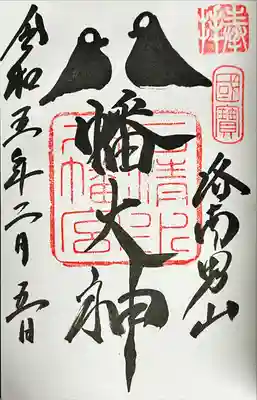 奉拝
國寶
洛南男山
八幡大神
石清水
八幡宮
令和五年二月五日